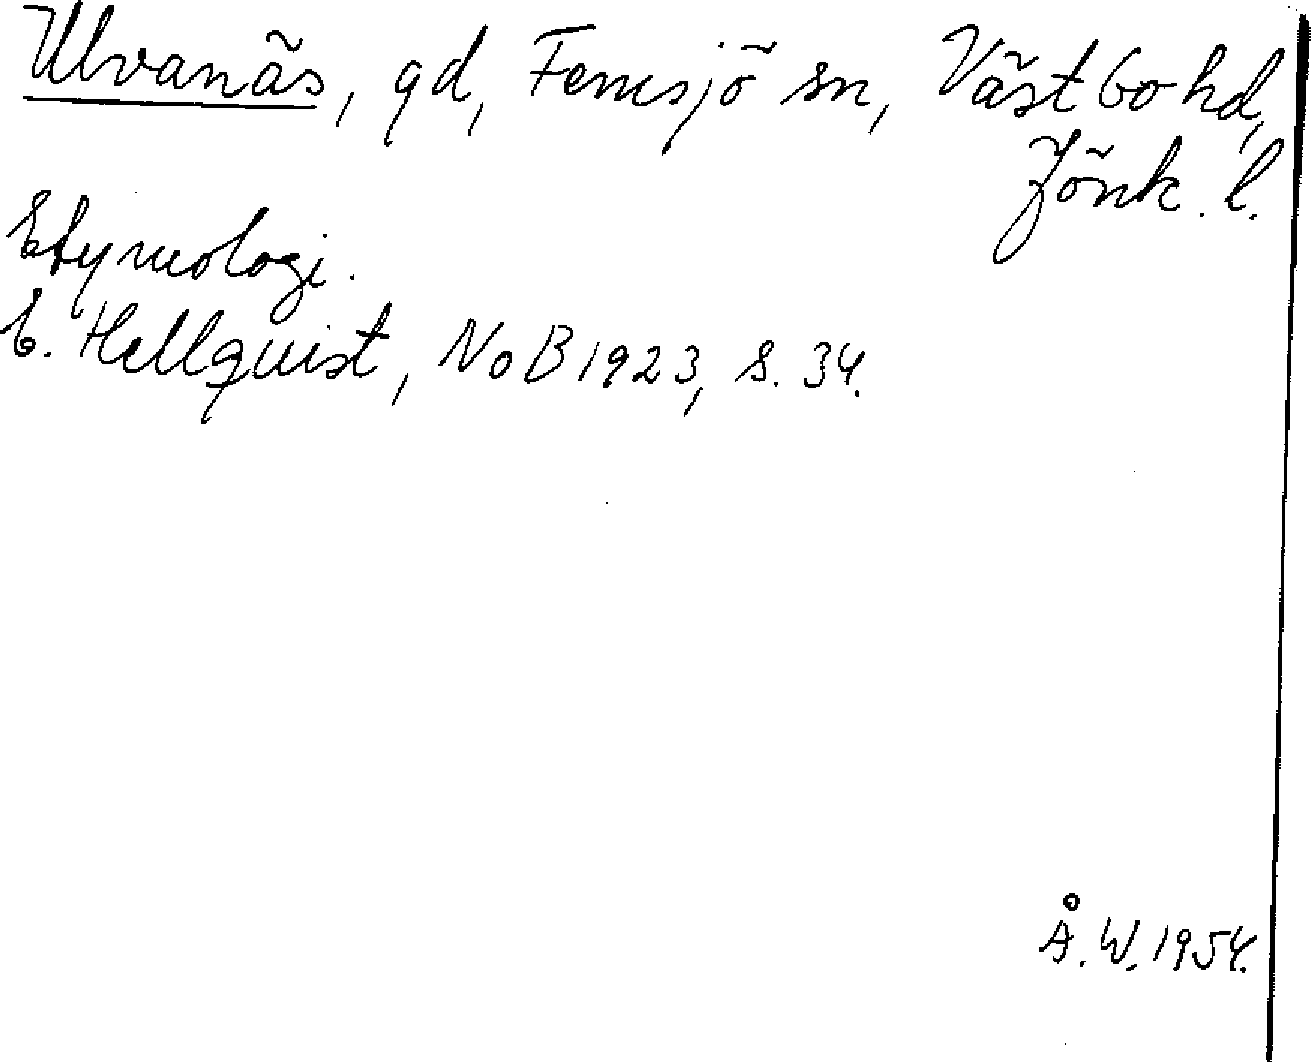 Ulvanäs, gd, Femsjö sn, Västbo hd,
Jönk. l.
Etymologi.
E. Hellquist, NoB 1923, s. 34.
Å. W. 1954.